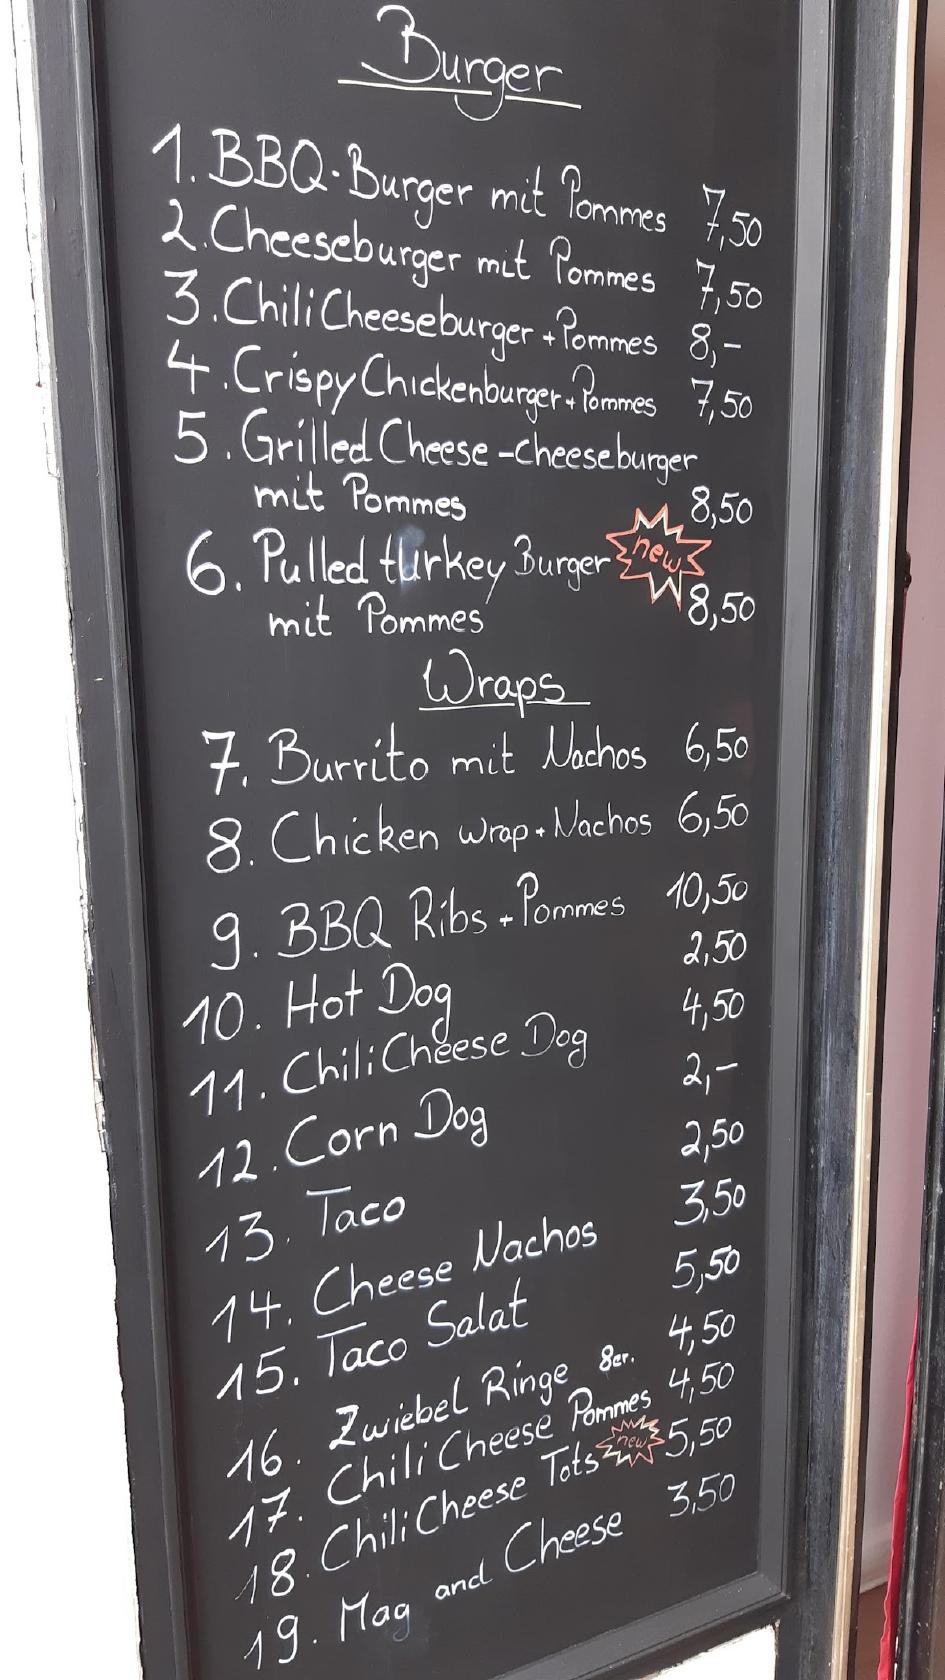 Burger
1. BBQ-Burger mit Pommes 7,50
2. Cheeseburger mit Pommes 7,50
3. Chili Cheeseburger + Pommes 8,-
4. Crispy Chickenburger + Pommes 7,50
5. Grilled Cheese - cheeseburger
mit Pommes 8,50
6. Pulled turkey Burger new
mit Pommes 8,50
Wraps
7. Burrito mit Nachos 6,50
8. Chicken wrap + Nachos 6,50
9. BBQ Ribs + Pommes 10,50
10. Hot Dog 2,50
11. Chili Cheese Dog 4,50
12. Corn Dog 2,-
13. Taco 2,50
14. Cheese Nachos 3,50
15. Taco Salat 5,50
16. Zwiebel Ringe 8er. 4,50
17. Chili Cheese Pommes 4,50
18. Chili Cheese Tots new 5,50
19. Mag and Cheese 3,50